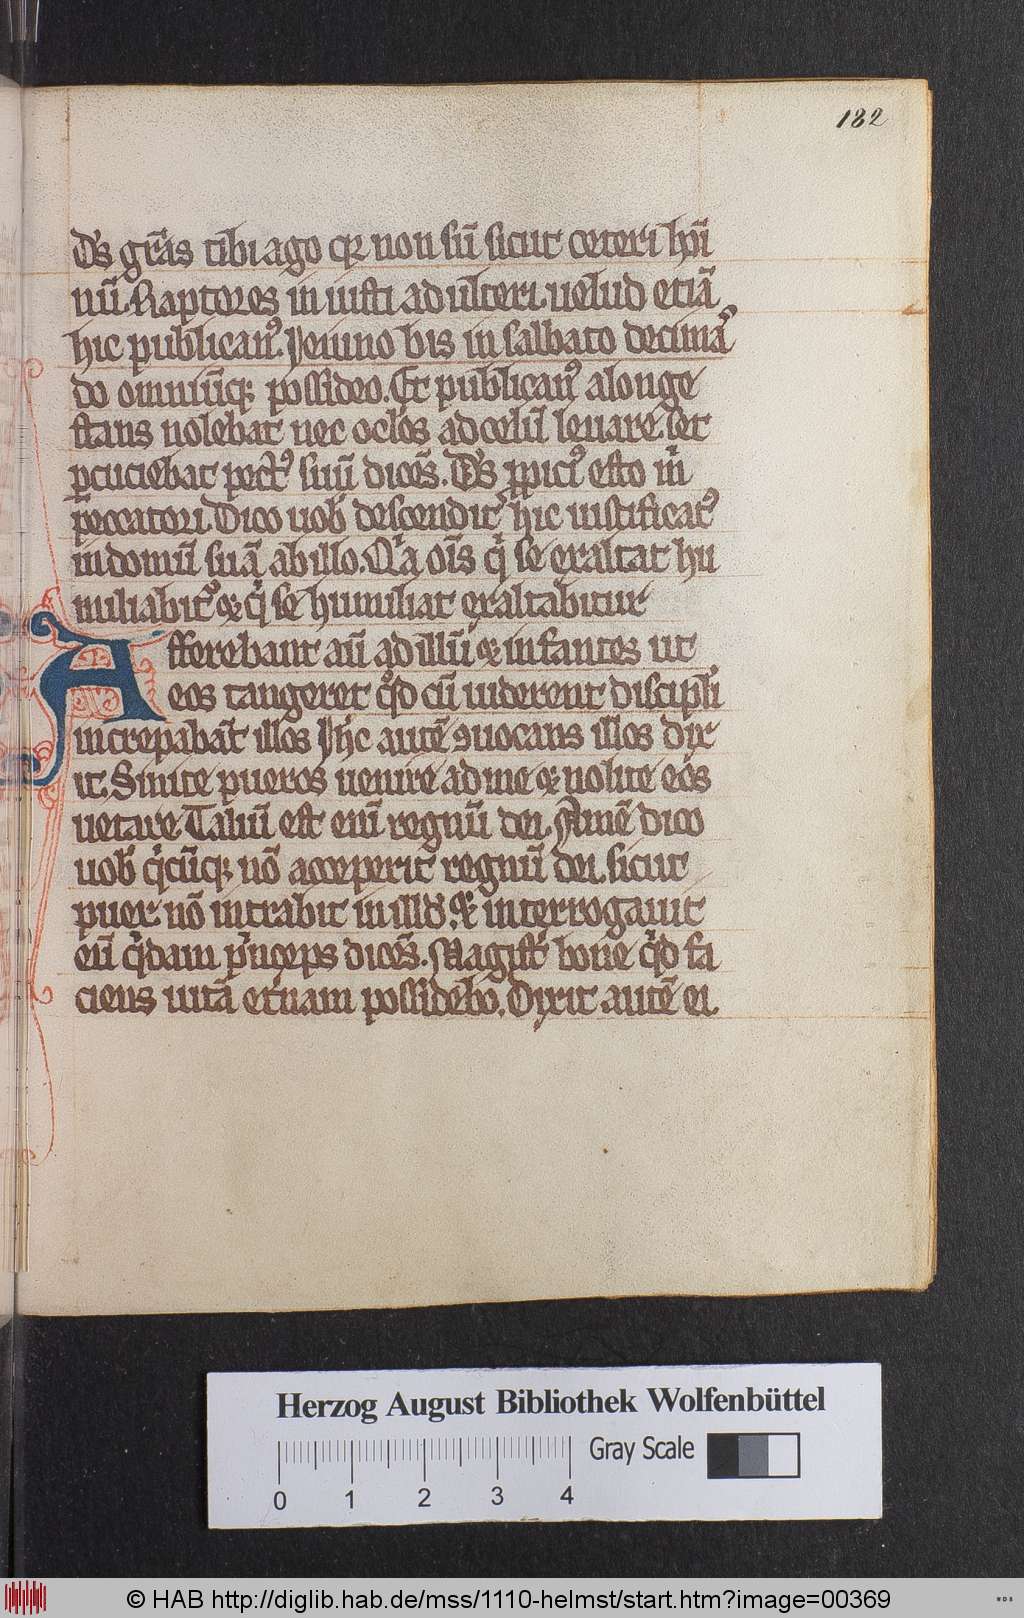 182
Ds grãs tibi ago qz non sũ sicut ceteri hoı̃
nũ. Raptores iniusti adulteri. uelud etiã
hic publicanꝰ. Jeiuno bis in sabbato decimãꝰ
do omniũqꝫ possideo. Et publicanꝰ alonge
stans nolebat nec oclõs ad celũ leuare. set
ꝑcuciebat pectꝰ suũ dicẽs. Ds ꝓpiciꝰ esto m̃
peccatori. Dico uob̃ descendit hic iustificatꝰ
in domũ suã ab illo. Q̃a oı̃s qⁱ se exaltat hu
miliabitꝰ ⁊ qⁱ se humiliat exaltabitur
Afferebant aũ ad illũ ⁊ infantes ut
eos tangeret qͦd cũ uiderent discipl̃i
increpabãt illos Jhc autẽ ꝯuocans illos dix
it. Sinite pueros uenire ad me ⁊ nolite eos
uetare. Taliũ est eiũ regnũ dei. Amẽ dico
uob̃ qⁱcũqꝫ nõ acceperit regnũ dei. sicut
puer nõ intrabit in illđ. ⁊ interrogauit
eũ qⁱdam pⁱnceps dicẽs. Magist̃ bone qⁱd fa
ciens uitã etnam possidebo. Dixit autẽ ei.
Herzog August Bibliothek Wolfenbüttel
Gray Scale
0 1 2 3 4
© HAB http://diglib.hab.de/mss/1110-helmst/start.htm?image=00369